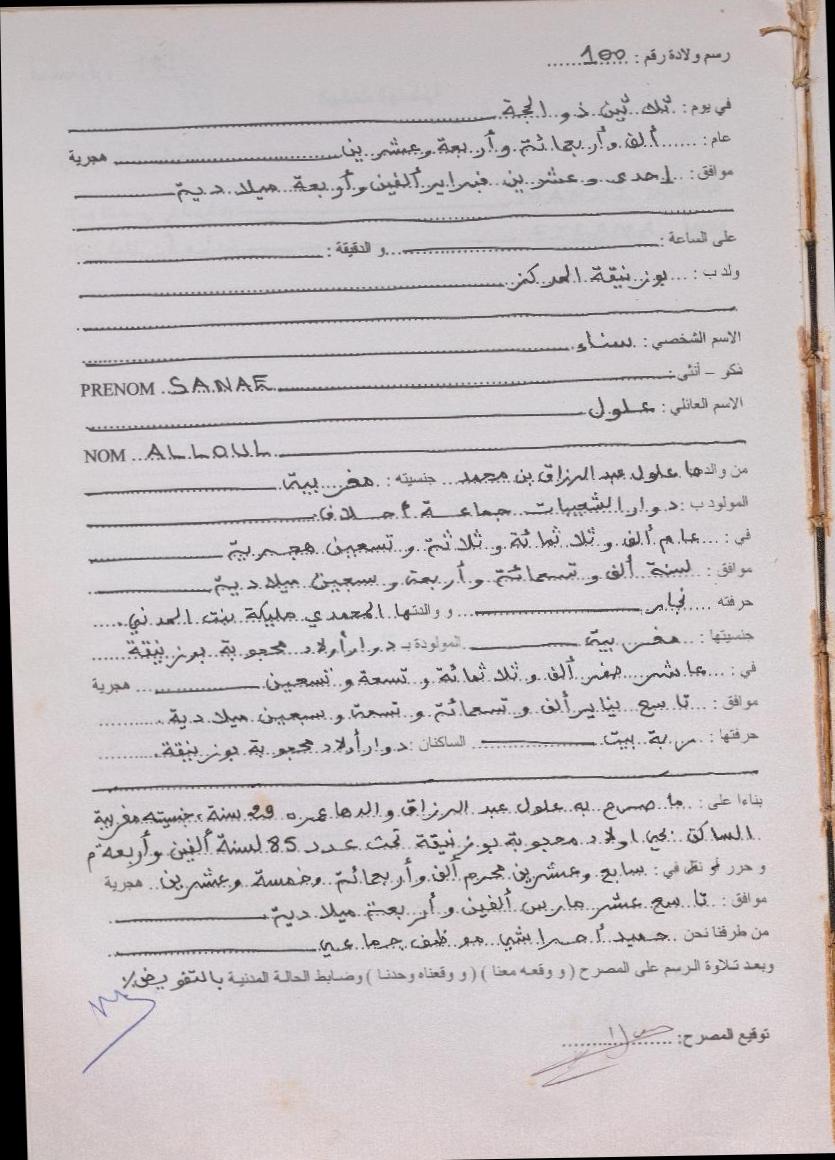 رسم ولادة رقم : 100
في يوم : ثلاثين ذو الحجة
عام : ألف وأربعمائة وأربعة وعشرين هجرية
موافق : إحدى وعشرين فبراير ألفين وأربعة ميلادية
على الساعة : و الدقيقة :
ولد ب : بوزنيقة المركز
الاسم الشخصي : سناء
ذكر – أنثى :
PRENOM SANAE
الاسم العائلي : علول
NOM ALLOUL
من والدها علول عبد الرزاق بن محمد جنسيته : مغربية
المولود ب : دوار الشعيبات جماعة أحلاف
في : عام ألف وثلاثمائة وثلاثة وتسعين هجرية
موافق : لسنة ألف وتسعمائة وأربعة وسبعين ميلادية
حرفته نجار و والدتها المحمدي مليكة بنت المدني
جنسيتها : مغربية المولودة بـ دوار أولاد محجوبة بوزنيقة
في : عاشر صفر ألف وثلاثمائة وتسعة وتسعين هجرية
موافق : تاسع يناير ألف وتسعمائة وتسعة وسبعين ميلادية
حرفتها : ربة بيت الساكنان : دوار أولاد محجوبة بوزنيقة
بناءا على : ما صرح به علول عبد الرزاق والدها عمره 29 سنة، جنسيته مغربية
الساكن بحي اولاد محجوبة بوزنيقة تحت عدد 85 لسنة ألفين وأربعة م
و حرر في : سابع وعشرين محرم ألف وأربعمائة وخمسة وعشرين هجرية
موافق : تاسع عشر مارس ألفين وأربعة ميلادية
من طرفنا نحن حميد أمراشي موظف جماعي
وبعد تلاوة الرسم على المصرح ( و وقعه معنا ) ( و وقعناه وحدنا ) وضابط الحالة المدنية بالتفويض
توقيع المصرح :